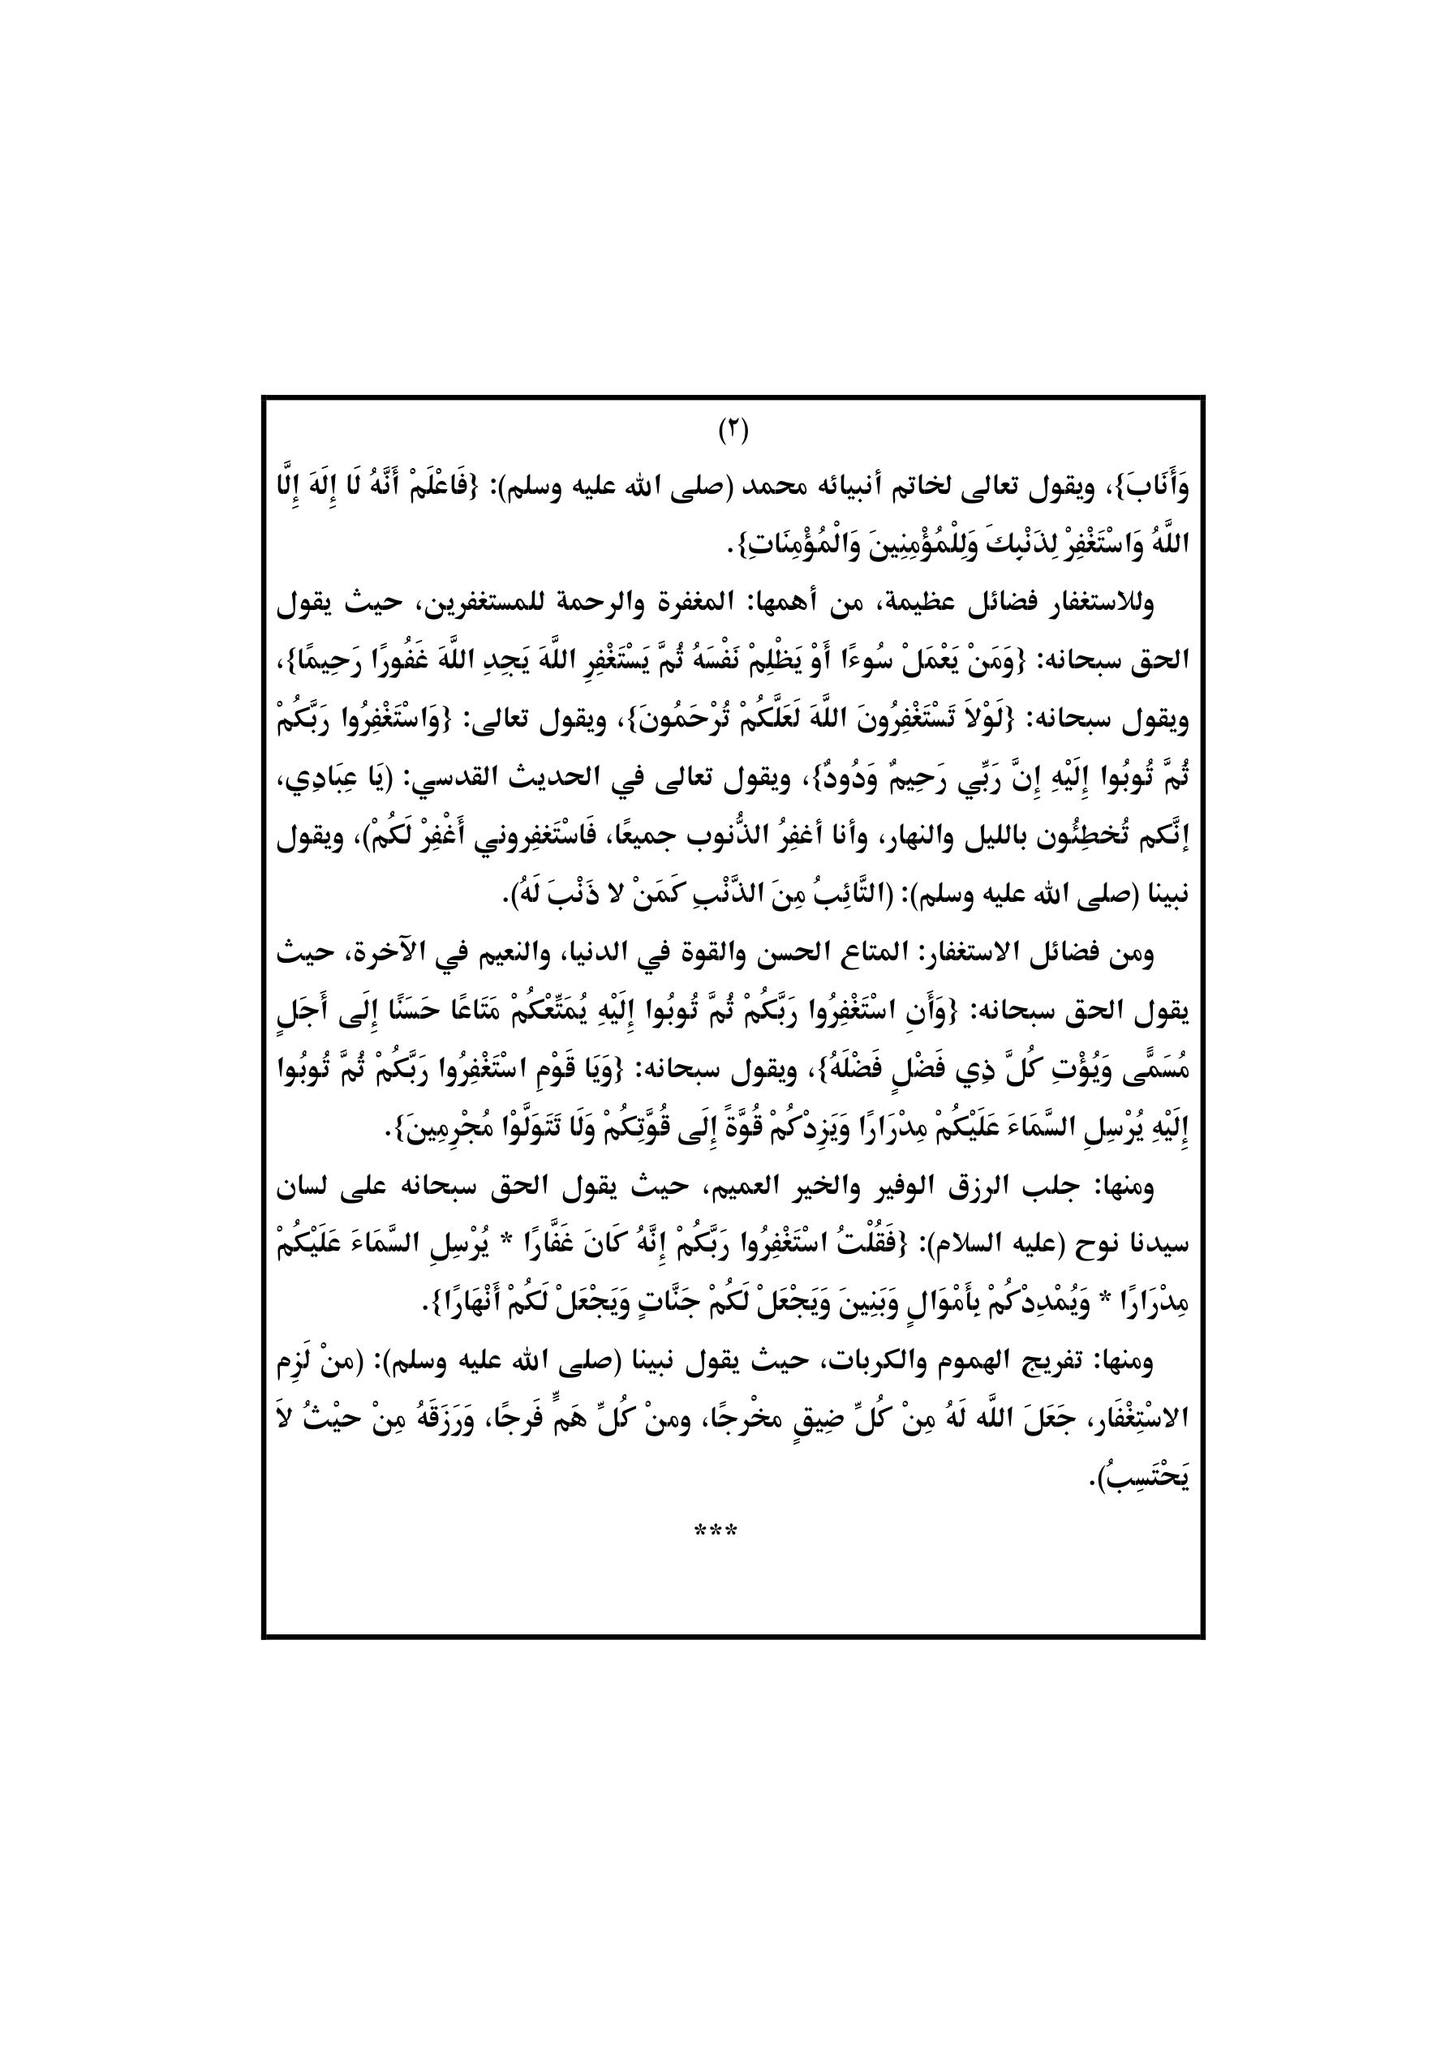 (٢)
وَأَنَابَ}، ويقول تعالى لخاتم أنبيائه محمد (صلى الله عليه وسلم): {فَاعْلَمْ أَنَّهُ لَا إِلَهَ إِلَّا
اللَّهُ وَاسْتَغْفِرْ لِذَنْبِكَ وَلِلْمُؤْمِنِينَ وَالْمُؤْمِنَاتِ}.
وللاستغفار فضائل عظيمة، من أهمها: المغفرة والرحمة للمستغفرين، حيث يقول
الحق سبحانه: {وَمَنْ يَعْمَلْ سُوءًا أَوْ يَظْلِمْ نَفْسَهُ ثُمَّ يَسْتَغْفِرِ اللَّهَ يَجِدِ اللَّهَ غَفُورًا رَحِيمًا}،
ويقول سبحانه: {لَوْلاَ تَسْتَغْفِرُونَ اللَّهَ لَعَلَّكُمْ تُرْحَمُونَ}، ويقول تعالى: {وَاسْتَغْفِرُوا رَبَّكُمْ
ثُمَّ تُوبُوا إِلَيْهِ إِنَّ رَبِّي رَحِيمٌ وَدُودٌ}، ويقول تعالى في الحديث القدسي: (يَا عِبَادِي،
إنَّكم تُخطِئُون بالليل والنهار، وأنا أغفِرُ الذُّنوب جميعًا، فَاسْتَغفِروني أَغْفِرْ لَكُمْ)، ويقول
نبينا (صلى الله عليه وسلم): (التَّائِبُ مِنَ الذَّنْبِ كَمَنْ لا ذَنْبَ لَهُ).
ومن فضائل الاستغفار: المتاع الحسن والقوة في الدنيا، والنعيم في الآخرة، حيث
يقول الحق سبحانه: {وَأَنِ اسْتَغْفِرُوا رَبَّكُمْ ثُمَّ تُوبُوا إِلَيْهِ يُمَتِّعْكُمْ مَتَاعًا حَسَنًا إِلَى أَجَلٍ
مُسَمًّى وَيُؤْتِ كُلَّ ذِي فَضْلٍ فَضْلَهُ}، ويقول سبحانه: {وَيَا قَوْمِ اسْتَغْفِرُوا رَبَّكُمْ ثُمَّ تُوبُوا
إِلَيْهِ يُرْسِلِ السَّمَاءَ عَلَيْكُمْ مِدْرَارًا وَيَزِدْكُمْ قُوَّةً إِلَى قُوَّتِكُمْ وَلَا تَتَوَلَّوْا مُجْرِمِينَ}.
ومنها: جلب الرزق الوفير والخير العميم، حيث يقول الحق سبحانه على لسان
سيدنا نوح (عليه السلام): {فَقُلْتُ اسْتَغْفِرُوا رَبَّكُمْ إِنَّهُ كَانَ غَفَّارًا * يُرْسِلِ السَّمَاءَ عَلَيْكُمْ
مِدْرَارًا * وَيُمْدِدْكُمْ بِأَمْوَالٍ وَبَنِينَ وَيَجْعَلْ لَكُمْ جَنَّاتٍ وَيَجْعَلْ لَكُمْ أَنْهَارًا}.
ومنها: تفريج الهموم والكربات، حيث يقول نبينا (صلى الله عليه وسلم): (منْ لَزِم
الاسْتِغْفَار، جَعَلَ اللَّه لَهُ مِنْ كُلِّ ضِيقٍ مخْرجًا، ومنْ كُلِّ هَمٍّ فَرجًا، وَرَزَقَهُ مِنْ حيْثُ لاَ
يَحْتَسِبُ).
***